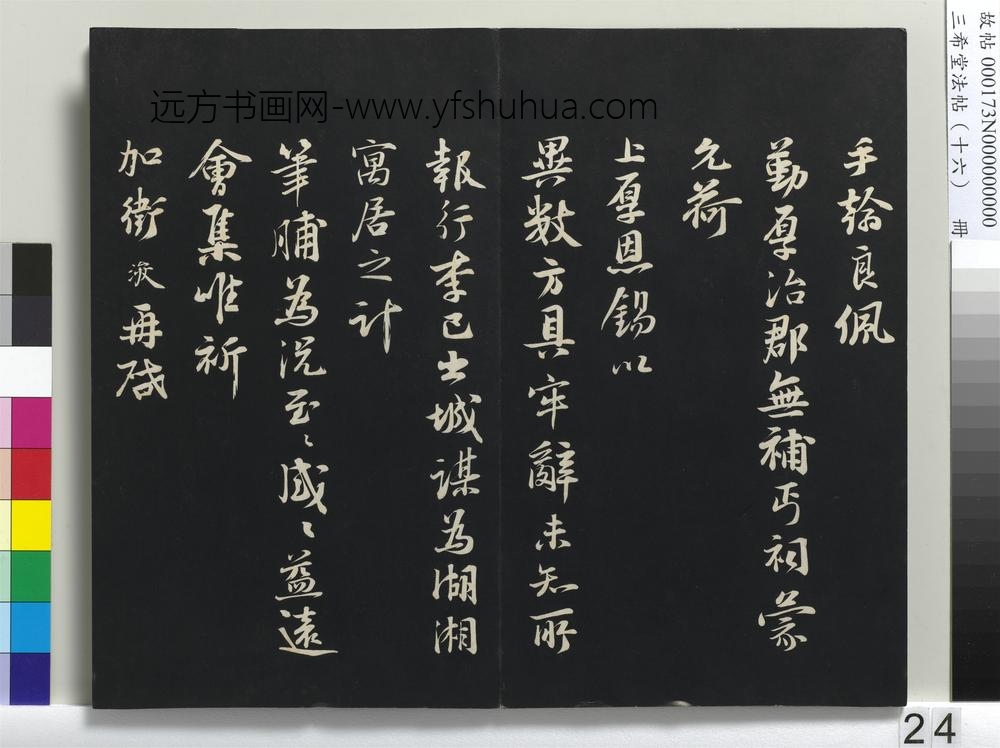 手翰良佩
勤厚治郡無補丐祠蒙
允荷
上厚恩錫以
異數方具牢辭未知所
報行李已出城謀為湖湘
寓居之計
筆脯為況至〻感〻益遠
會集唯祈
加衛 浚再啟
远方书画网-www.yfshuhua.com
故帖 000173N000000000
三希堂法帖（十六） 冊
24